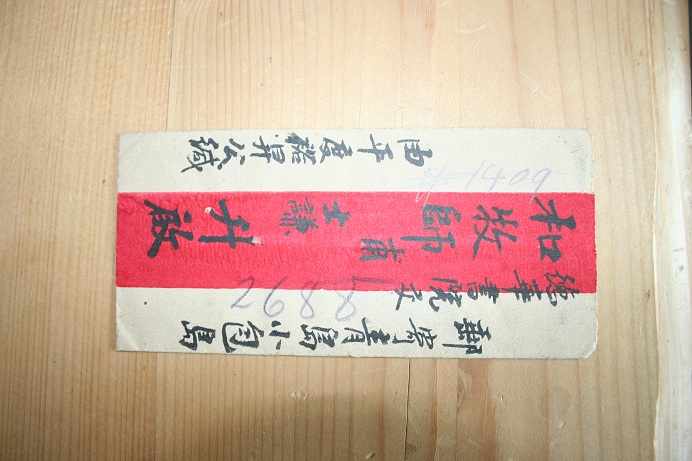 郵寄青島小包島
德華書院交
和牧師甫士謙升啟
由平度昇公緘
#1409
2688